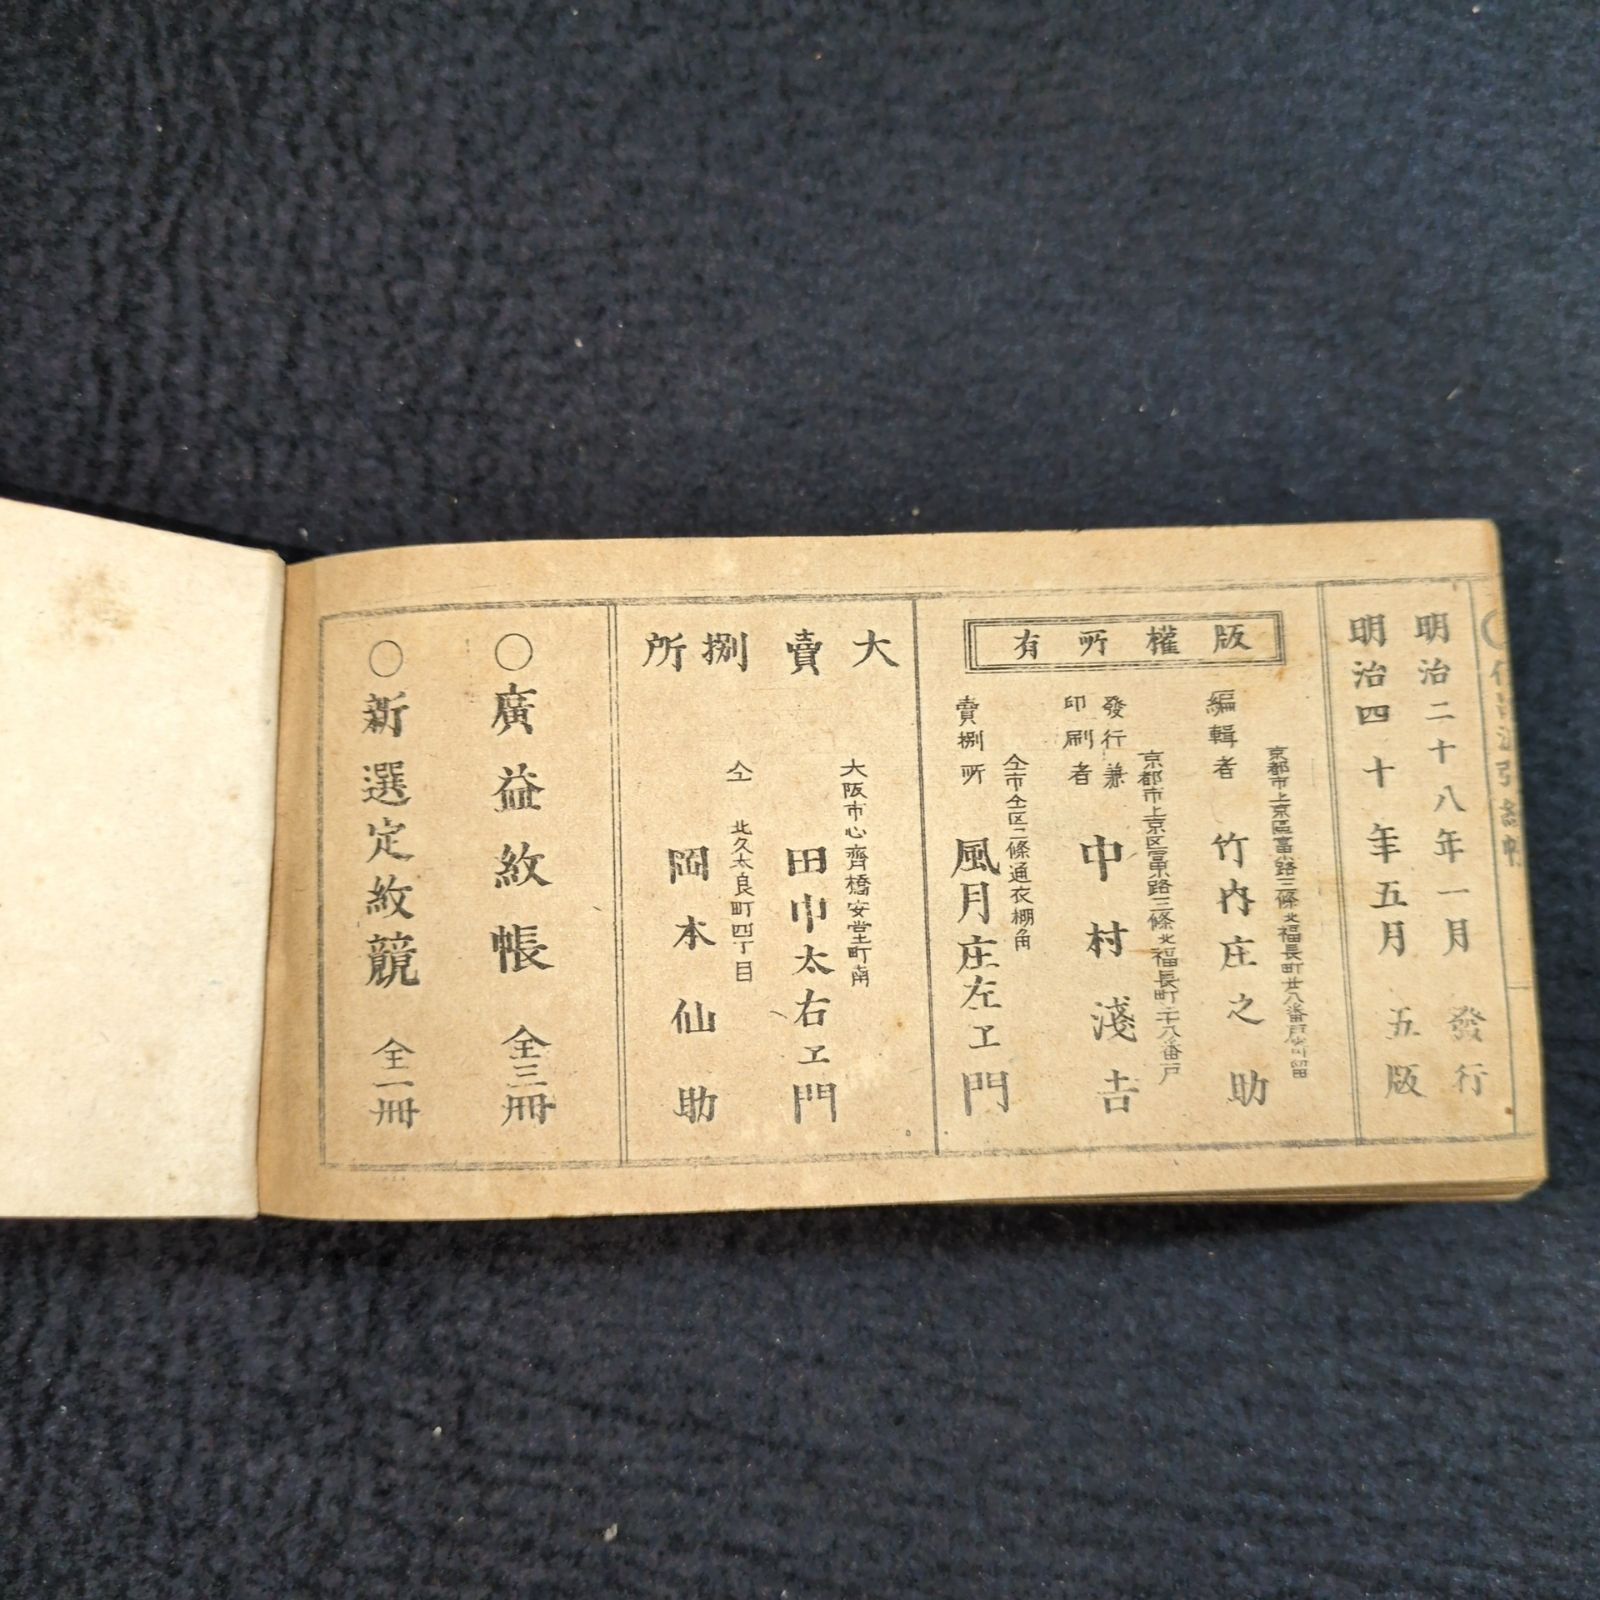 明治二十八年一月 發行
明治四十年五月 五版
版權所有
京都市上京區富小路三條北福長町廿八番戸寄留
編輯者 竹内庄之助
京都市上京区富小路三條北福長町二十八番戸
發行兼印刷者 中村淺吉
仝市仝区二條通衣棚角
賣捌所 風月庄左エ門
大賣捌所
大阪市心齊橋安堂町南
田中太右エ門
仝 北久太良町四丁目
岡本仙助
○廣益紋帳 全三冊
○新選定紋競 全一冊